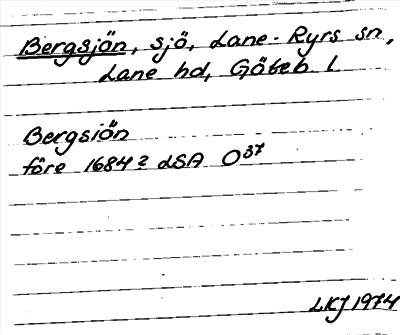 Bergsjön, sjö, Lane-Ryrs sn,
Lane hd, Göteb. l
Bergsiön
före 1684? LSA O37
LKJ 1974